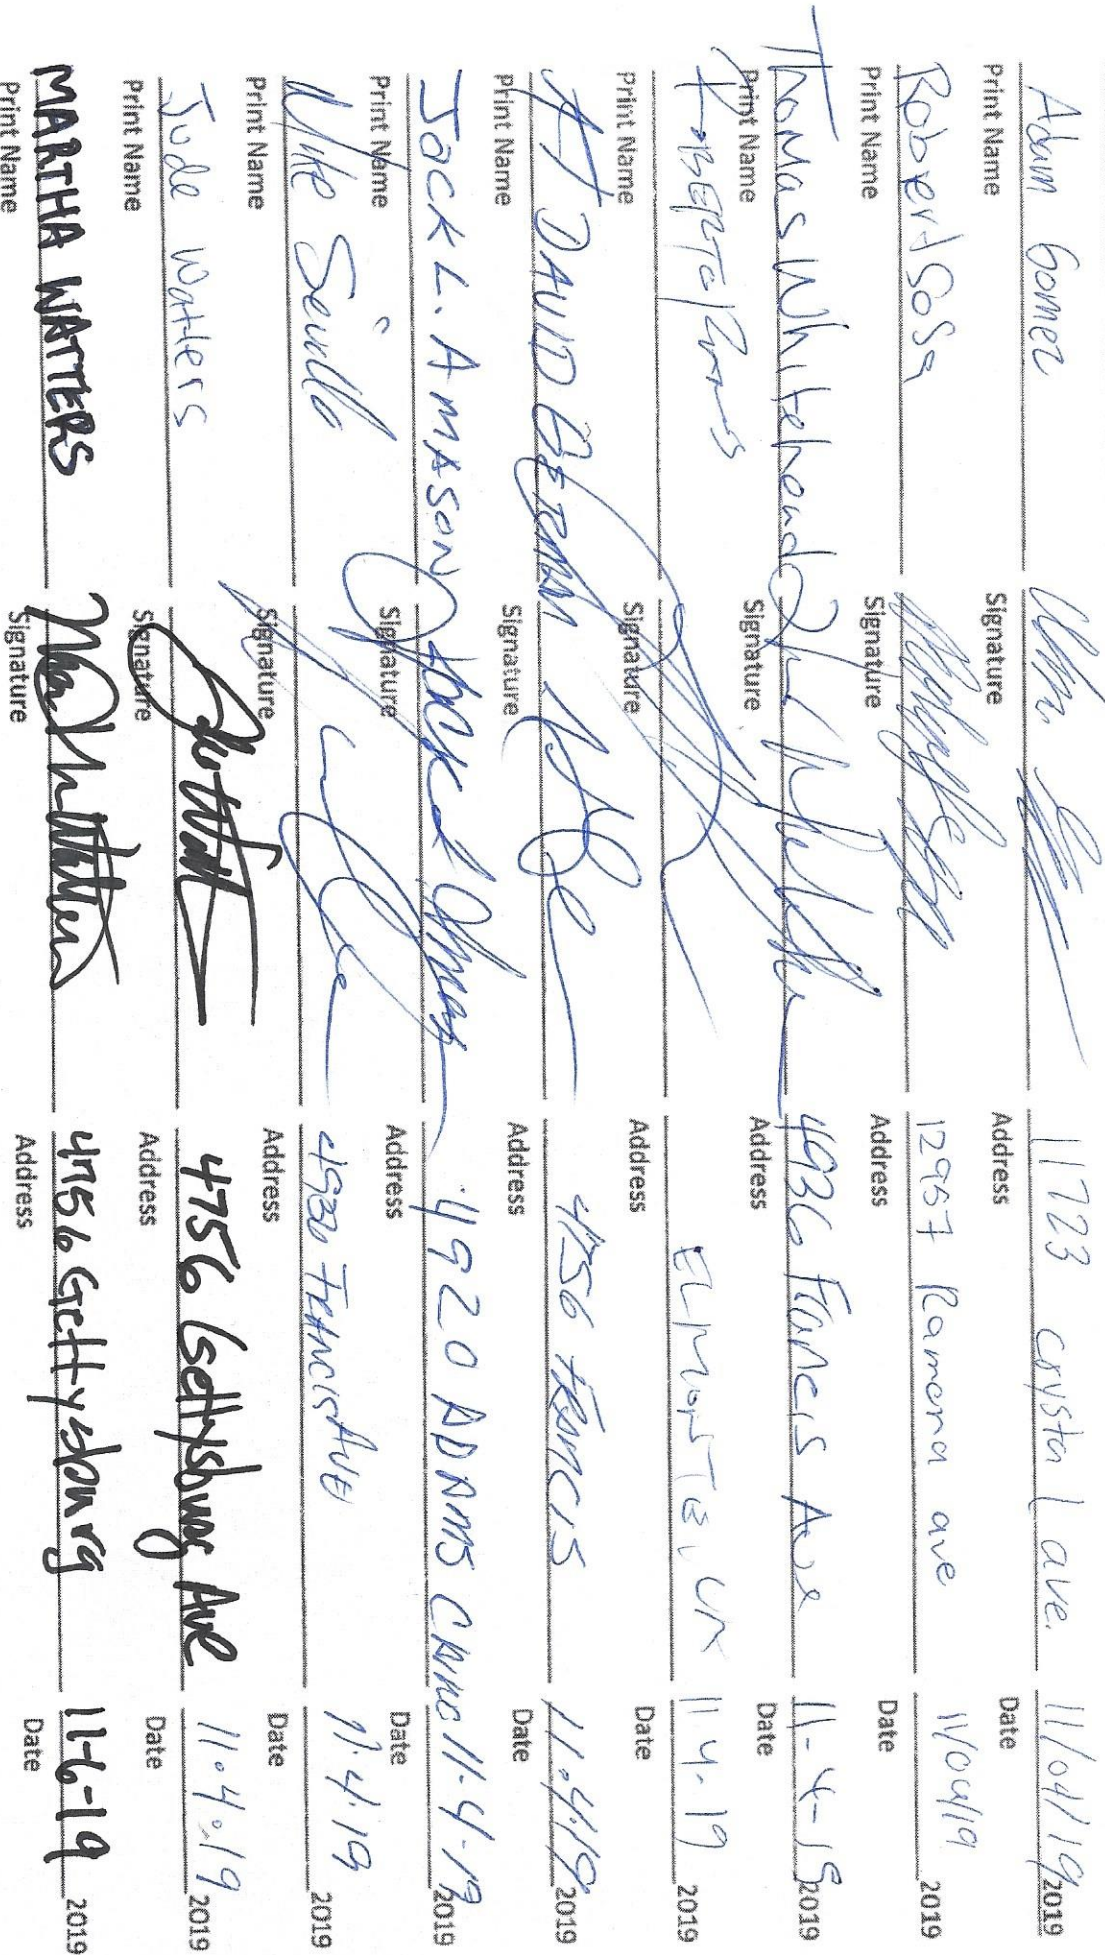 Adam Gomez 11723 crystal ave. 11/04/19 2019
Print Name Signature Address Date
Robert Sosa 12957 Ramona ave 11/04/19 2019
Print Name Signature Address Date
Thomas Whitehead 4936 Francis Ave 11-4-19 2019
Print Name Signature Address Date
EL MONTE, CA 11-4-19 2019
Print Name Signature Address Date
H DAVID 4756 FRANCIS 11-4-19 2019
Print Name Signature Address Date
JACK L. AMASON 4920 ADAMS CHINO 11-4-19 2019
Print Name Signature Address Date
Mike FRANCIS AVE 11-4-19 2019
Print Name Signature Address Date
Jude Watters 4756 Gettysburg Ave 11-4-19 2019
Print Name Signature Address Date
MARTHA WATTERS 4756 Gettysburg 11-6-19 2019
Print Name Signature Address Date